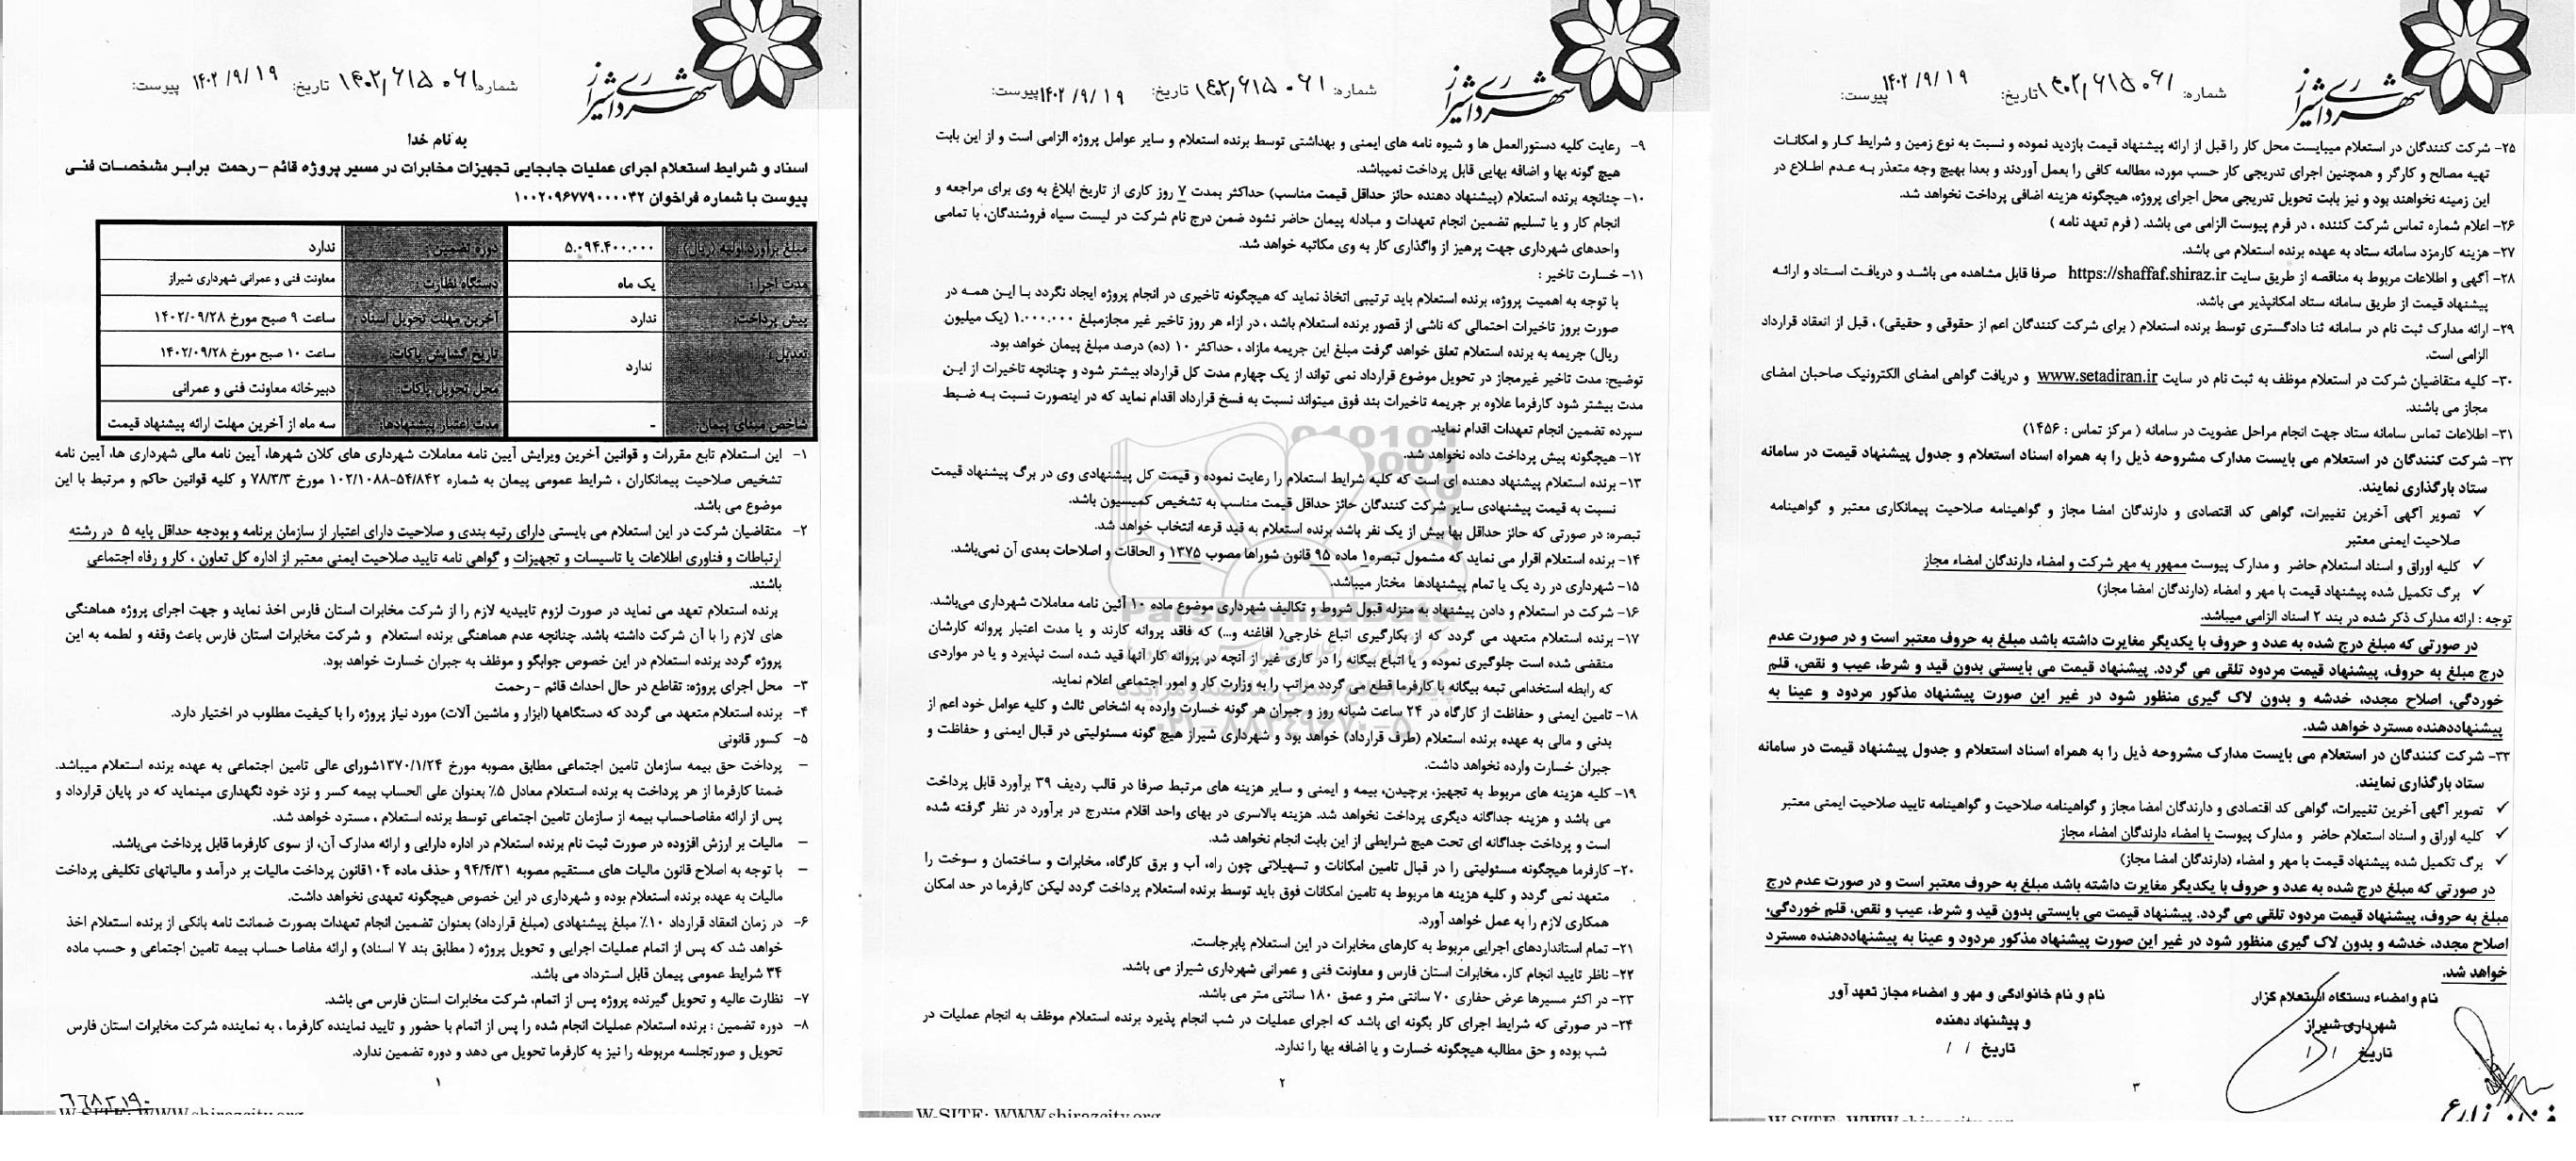 شهرداری شیراز
شماره: ۱۴۰۲٫۶۱۵۰۶۱ تاریخ: ۱۴۰۲/۹/۱۹ پیوست:
به نام خدا
اسناد و شرایط استعلام اجرای عملیات جابجایی تجهیزات مخابرات در مسیر پروژه قائم – رحمت برابر مشخصات فنی
پیوست با شماره فراخوان ۱۰۰۲۰۹۶۷۷۹۰۰۰۰۳۲
مبلغ برآورد اولیه (ریال): ۵.۰۹۴.۴۰۰.۰۰۰ دوره تضمین: ندارد
مدت اجرا: یک ماه دستگاه نظارت: معاونت فنی و عمرانی شهرداری شیراز
پیش پرداخت: ندارد آخرین مهلت تحویل اسناد: ساعت ۹ صبح مورخ ۱۴۰۲/۰۹/۲۸
تعدیل: ندارد تاریخ گشایش پاکات: ساعت ۱۰ صبح مورخ ۱۴۰۲/۰۹/۲۸
محل تحویل پاکات: دبیرخانه معاونت فنی و عمرانی
شاخص مبنای پیمان: - مدت اعتبار پیشنهادها: سه ماه از آخرین مهلت ارائه پیشنهاد قیمت
۱- این استعلام تابع مقررات و قوانین آخرین ویرایش آیین نامه معاملات شهرداری های کلان شهرها، آیین نامه مالی شهرداری ها، آیین نامه
تشخیص صلاحیت پیمانکاران ، شرایط عمومی پیمان به شماره ۵۴/۸۴۲-۱۰۲/۱۰۸۸ مورخ ۷۸/۳/۳ و کلیه قوانین حاکم و مرتبط با این
موضوع می باشد.
۲- متقاضیان شرکت در این استعلام می بایستی دارای رتبه بندی و صلاحیت دارای اعتبار از سازمان برنامه و بودجه حداقل پایه ۵ در رشته
ارتباطات و فناوری اطلاعات یا تاسیسات و تجهیزات و گواهی نامه تایید صلاحیت ایمنی معتبر از اداره کل تعاون ، کار و رفاه اجتماعی
باشند.
برنده استعلام تعهد می نماید در صورت لزوم تاییدیه لازم را از شرکت مخابرات استان فارس اخذ نماید و جهت اجرای پروژه هماهنگی
های لازم را با آن شرکت داشته باشد. چنانچه عدم هماهنگی برنده استعلام و شرکت مخابرات استان فارس باعث وقفه و لطمه به این
پروژه گردد برنده استعلام در این خصوص جوابگو و موظف به جبران خسارت خواهد بود.
۳- محل اجرای پروژه: تقاطع در حال احداث قائم – رحمت
۴- برنده استعلام متعهد می گردد که دستگاهها (ابزار و ماشین آلات) مورد نیاز پروژه را با کیفیت مطلوب در اختیار دارد.
۵- کسور قانونی
– پرداخت حق بیمه سازمان تامین اجتماعی مطابق مصوبه مورخ ۱۳۷۰/۱/۲۴شورای عالی تامین اجتماعی به عهده برنده استعلام میباشد.
ضمنا کارفرما از هر پرداخت به برنده استعلام معادل ۵٪ بعنوان علی الحساب بیمه کسر و نزد خود نگهداری مینماید که در پایان قرارداد و
پس از ارائه مفاصاحساب بیمه از سازمان تامین اجتماعی توسط برنده استعلام ، مسترد خواهد شد.
– مالیات بر ارزش افزوده در صورت ثبت نام برنده استعلام در اداره دارایی و ارائه مدارک آن، از سوی کارفرما قابل پرداخت می‌باشد.
– با توجه به اصلاح قانون مالیات های مستقیم مصوبه ۹۴/۴/۳۱ و حذف ماده ۱۰۴قانون پرداخت مالیات بر درآمد و مالیاتهای تکلیفی پرداخت
مالیات به عهده برنده استعلام بوده و شهرداری در این خصوص هیچگونه تعهدی نخواهد داشت.
۶- در زمان انعقاد قرارداد ۱۰٪ مبلغ پیشنهادی (مبلغ قرارداد) بعنوان تضمین انجام تعهدات بصورت ضمانت نامه بانکی از برنده استعلام اخذ
خواهد شد که پس از اتمام عملیات اجرایی و تحویل پروژه ( مطابق بند ۷ اسناد) و ارائه مفاصا حساب بیمه تامین اجتماعی و حسب ماده
۳۴ شرایط عمومی پیمان قابل استرداد می باشد.
۷- نظارت عالیه و تحویل گیرنده پروژه پس از اتمام، شرکت مخابرات استان فارس می باشد.
۸- دوره تضمین : برنده استعلام عملیات انجام شده را پس از اتمام با حضور و تایید نماینده کارفرما ، به نماینده شرکت مخابرات استان فارس
تحویل و صورتجلسه مربوطه را نیز به کارفرما تحویل می دهد و دوره تضمین ندارد.
۱
۶۶۸۲۱۹۰
W-SITE: WWW.shirazcity.org
شهرداری شیراز
شماره: ۱۴۰۲٫۶۱۵۰۶۱ تاریخ: ۱۴۰۲/۹/۱۹ پیوست:
۹- رعایت کلیه دستورالعمل ها و شیوه نامه های ایمنی و بهداشتی توسط برنده استعلام و سایر عوامل پروژه الزامی است و از این بابت
هیچ گونه بها و اضافه بهایی قابل پرداخت نمیباشد.
۱۰- چنانچه برنده استعلام (پیشنهاد دهنده حائز حداقل قیمت مناسب) حداکثر بمدت ۷ روز کاری از تاریخ ابلاغ به وی برای مراجعه و
انجام کار و یا تسلیم تضمین انجام تعهدات و مبادله پیمان حاضر نشود ضمن درج نام شرکت در لیست سیاه فروشندگان، با تمامی
واحدهای شهرداری جهت پرهیز از واگذاری کار به وی مکاتبه خواهد شد.
۱۱- خسارت تاخیر :
با توجه به اهمیت پروژه، برنده استعلام باید ترتیبی اتخاذ نماید که هیچگونه تاخیری در انجام پروژه ایجاد نگردد با این همه در
صورت بروز تاخیرات احتمالی که ناشی از قصور برنده استعلام باشد ، در ازاء هر روز تاخیر غیر مجازمبلغ ۱.۰۰۰.۰۰۰ (یک میلیون
ریال) جریمه به برنده استعلام تعلق خواهد گرفت مبلغ این جریمه مازاد ، حداکثر ۱۰ (ده) درصد مبلغ پیمان خواهد بود.
توضیح: مدت تاخیر غیرمجاز در تحویل موضوع قرارداد نمی تواند از یک چهارم مدت کل قرارداد بیشتر شود و چنانچه تاخیرات از این
مدت بیشتر شود کارفرما علاوه بر جریمه تاخیرات بند فوق میتواند نسبت به فسخ قرارداد اقدام نماید که در اینصورت نسبت به ضبط
سپرده تضمین انجام تعهدات اقدام نماید.
۱۲- هیچگونه پیش پرداخت داده نخواهد شد.
۱۳- برنده استعلام پیشنهاد دهنده ای است که کلیه شرایط استعلام را رعایت نموده و قیمت کل پیشنهادی وی در برگ پیشنهاد قیمت
نسبت به قیمت پیشنهادی سایر شرکت کنندگان حائز حداقل قیمت مناسب به تشخیص کمیسیون باشد.
تبصره: در صورتی که حائز حداقل بها بیش از یک نفر باشد برنده استعلام به قید قرعه انتخاب خواهد شد.
۱۴- برنده استعلام اقرار می نماید که مشمول تبصره۱ ماده ۹۵ قانون شوراها مصوب ۱۳۷۵ و الحاقات و اصلاحات بعدی آن نمی‌باشد.
۱۵- شهرداری در رد یک یا تمام پیشنهادها مختار میباشد.
۱۶- شرکت در استعلام و دادن پیشنهاد به منزله قبول شروط و تکالیف شهرداری موضوع ماده ۱۰ آئین نامه معاملات شهرداری می‌باشد.
۱۷- برنده استعلام متعهد می گردد که از بکارگیری اتباع خارجی( افاغنه و...) که فاقد پروانه کارند و یا مدت اعتبار پروانه کارشان
منقضی شده است جلوگیری نموده و یا اتباع بیگانه را در کاری غیر از آنچه در پروانه کار آنها قید شده است نپذیرد و یا در مواردی
که رابطه استخدامی تبعه بیگانه با کارفرما قطع می گردد مراتب را به وزارت کار و امور اجتماعی اعلام نماید.
۱۸- تامین ایمنی و حفاظت از کارگاه در ۲۴ ساعت شبانه روز و جبران هر گونه خسارت وارده به اشخاص ثالث و کلیه عوامل خود اعم از
بدنی و مالی به عهده برنده استعلام (طرف قرارداد) خواهد بود و شهرداری شیراز هیچ گونه مسئولیتی در قبال ایمنی و حفاظت و
جبران خسارت وارده نخواهد داشت.
۱۹- کلیه هزینه های مربوط به تجهیز، برچیدن، بیمه و ایمنی و سایر هزینه های مرتبط صرفا در قالب ردیف ۳۹ برآورد قابل پرداخت
می باشد و هزینه جداگانه دیگری پرداخت نخواهد شد. هزینه بالاسری در بهای واحد اقلام مندرج در برآورد در نظر گرفته شده
است و پرداخت جداگانه ای تحت هیچ شرایطی از این بابت انجام نخواهد شد.
۲۰- کارفرما هیچگونه مسئولیتی را در قبال تامین امکانات و تسهیلاتی چون راه، آب و برق کارگاه، مخابرات و ساختمان و سوخت را
متعهد نمی گردد و کلیه هزینه ها مربوط به تامین امکانات فوق باید توسط برنده استعلام پرداخت گردد لیکن کارفرما در حد امکان
همکاری لازم را به عمل خواهد آورد.
۲۱- تمام استانداردهای اجرایی مربوط به کارهای مخابرات در این استعلام پابرجاست.
۲۲- ناظر تایید انجام کار، مخابرات استان فارس و معاونت فنی و عمرانی شهرداری شیراز می باشد.
۲۳- در اکثر مسیرها عرض حفاری ۷۰ سانتی متر و عمق ۱۸۰ سانتی متر می باشد.
۲۴- در صورتی که شرایط اجرای کار بگونه ای باشد که اجرای عملیات در شب انجام پذیرد برنده استعلام موظف به انجام عملیات در
شب بوده و حق مطالبه هیچگونه خسارت و یا اضافه بها را ندارد.
۲
W-SITE: WWW.shirazcity.org
ParsNamadData
۰۲۱-۸۸۳۴۹۶۷۰-۵
شهرداری شیراز
شماره: ۱۴۰۲٫۶۱۵۰۶۱ تاریخ: ۱۴۰۲/۹/۱۹ پیوست:
۲۵- شرکت کنندگان در استعلام میبایست محل کار را قبل از ارائه پیشنهاد قیمت بازدید نموده و نسبت به نوع زمین و شرایط کار و امکانات
تهیه مصالح و کارگر و همچنین اجرای تدریجی کار حسب مورد، مطالعه کافی را بعمل آوردند و بعدا بهیچ وجه متعذر به عدم اطلاع در
این زمینه نخواهند بود و نیز بابت تحویل تدریجی محل اجرای پروژه، هیچگونه هزینه اضافی پرداخت نخواهد شد.
۲۶- اعلام شماره تماس شرکت کننده ، در فرم پیوست الزامی می باشد. ( فرم تعهد نامه )
۲۷- هزینه کارمزد سامانه ستاد به عهده برنده استعلام می باشد.
۲۸- آگهی و اطلاعات مربوط به مناقصه از طریق سایت https://shaffaf.shiraz.ir صرفا قابل مشاهده می باشد و دریافت اسناد و ارائه
پیشنهاد قیمت از طریق سامانه ستاد امکانپذیر می باشد.
۲۹- ارائه مدارک ثبت نام در سامانه ثنا دادگستری توسط برنده استعلام ( برای شرکت کنندگان اعم از حقوقی و حقیقی) ، قبل از انعقاد قرارداد
الزامی است.
۳۰- کلیه متقاضیان شرکت در استعلام موظف به ثبت نام در سایت www.setadiran.ir و دریافت گواهی امضای الکترونیک صاحبان امضای
مجاز می باشند.
۳۱- اطلاعات تماس سامانه ستاد جهت انجام مراحل عضویت در سامانه ( مرکز تماس : ۱۴۵۶)
۳۲- شرکت کنندگان در استعلام می بایست مدارک مشروحه ذیل را به همراه اسناد استعلام و جدول پیشنهاد قیمت در سامانه
ستاد بارگذاری نمایند.
✓ تصویر آگهی آخرین تغییرات، گواهی کد اقتصادی و دارندگان امضا مجاز و گواهینامه صلاحیت پیمانکاری معتبر و گواهینامه
صلاحیت ایمنی معتبر
✓ کلیه اوراق و اسناد استعلام حاضر و مدارک پیوست ممهور به مهر شرکت و امضاء دارندگان امضاء مجاز
✓ برگ تکمیل شده پیشنهاد قیمت با مهر و امضاء (دارندگان امضا مجاز)
توجه : ارائه مدارک ذکر شده در بند ۲ اسناد الزامی میباشد.
در صورتی که مبلغ درج شده به عدد و حروف با یکدیگر مغایرت داشته باشد مبلغ به حروف معتبر است و در صورت عدم
درج مبلغ به حروف، پیشنهاد قیمت مردود تلقی می گردد. پیشنهاد قیمت می بایستی بدون قید و شرط، عیب و نقص، قلم
خوردگی، اصلاح مجدد، خدشه و بدون لاک گیری منظور شود در غیر این صورت پیشنهاد مذکور مردود و عینا به
پیشنهاددهنده مسترد خواهد شد.
۳۳- شرکت کنندگان در استعلام می بایست مدارک مشروحه ذیل را به همراه اسناد استعلام و جدول پیشنهاد قیمت در سامانه
ستاد بارگذاری نمایند.
✓ تصویر آگهی آخرین تغییرات، گواهی کد اقتصادی و دارندگان امضا مجاز و گواهینامه صلاحیت و گواهینامه تایید صلاحیت ایمنی معتبر
✓ کلیه اوراق و اسناد استعلام حاضر و مدارک پیوست با امضاء دارندگان امضاء مجاز
✓ برگ تکمیل شده پیشنهاد قیمت با مهر و امضاء (دارندگان امضا مجاز)
در صورتی که مبلغ درج شده به عدد و حروف با یکدیگر مغایرت داشته باشد مبلغ به حروف معتبر است و در صورت عدم درج
مبلغ به حروف، پیشنهاد قیمت مردود تلقی می گردد. پیشنهاد قیمت می بایستی بدون قید و شرط، عیب و نقص، قلم خوردگی،
اصلاح مجدد، خدشه و بدون لاک گیری منظور شود در غیر این صورت پیشنهاد مذکور مردود و عینا به پیشنهاددهنده مسترد
خواهد شد.
نام وامضاء دستگاه استعلام گزار نام و نام خانوادگی و مهر و امضاء مجاز تعهد آور
شهرداری شیراز و پیشنهاد دهنده
تاریخ / / تاریخ / /
۳
W-SITE: WWW.shirazcity.org